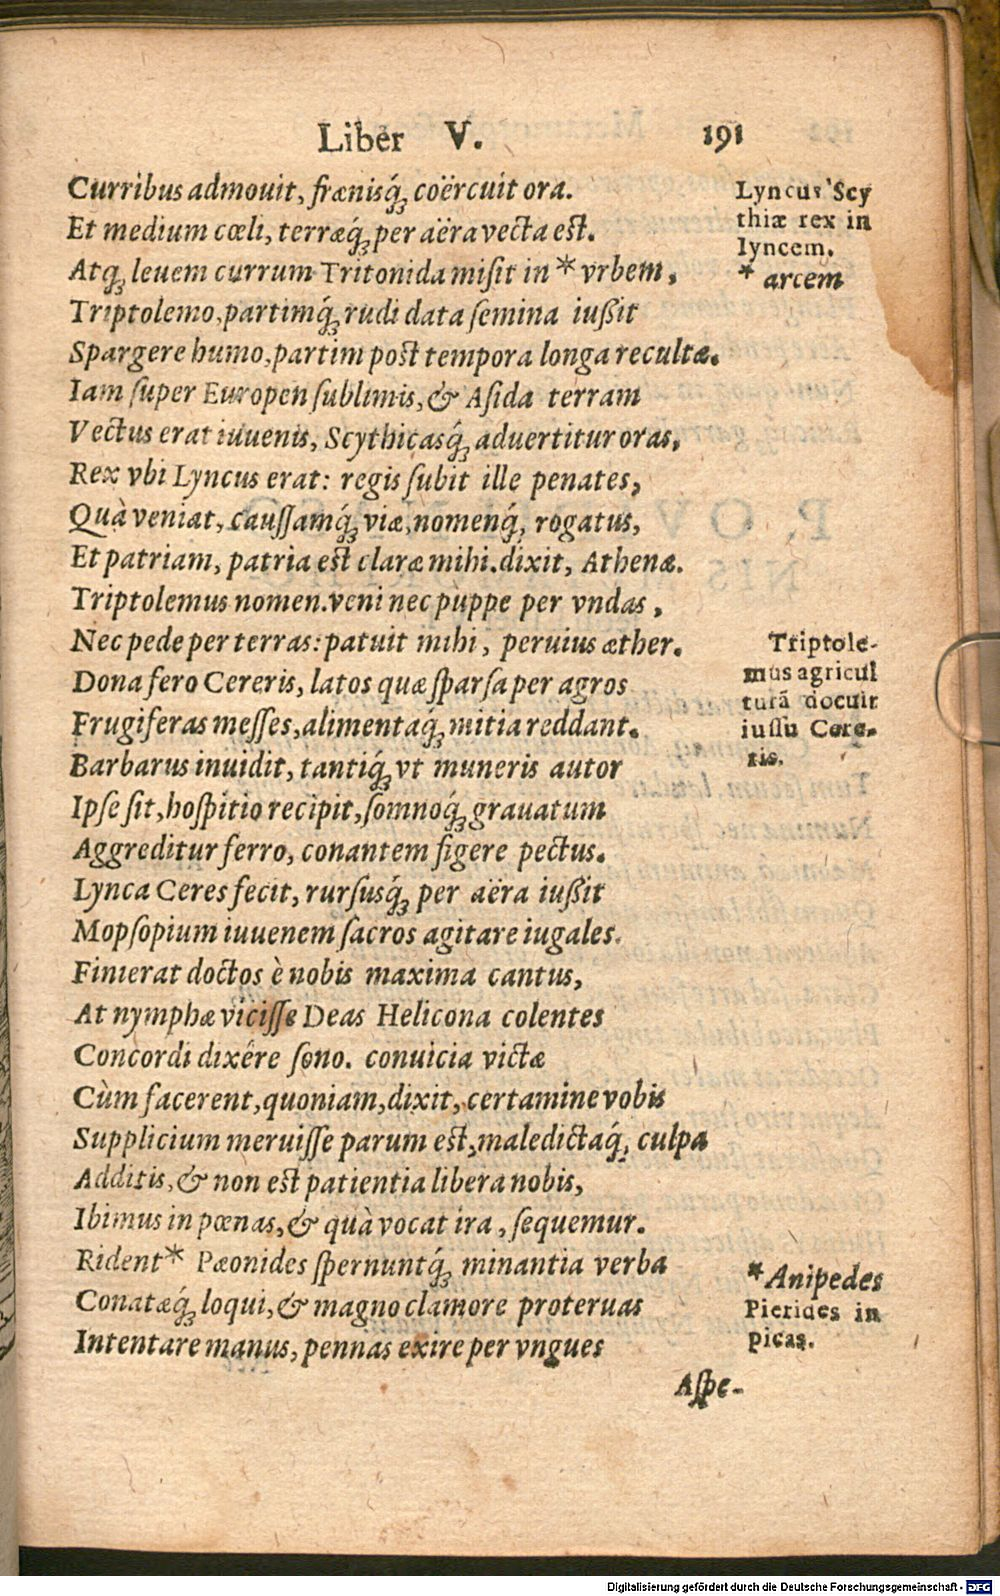 Liber V. 191
Curribus admouit, frænisq́ꝫ coërcuit ora.
Et medium cœli, terræq́ꝫ per aëra vecta est.
Atqꝫ leuem currum Tritonida misit in * vrbem,
Triptolemo, partimq́ꝫ rudi data semina iußit
Spargere humo, partim post tempora longa recultæ.
Iam super Europen sublimis, & Asida terram
Vectus erat iuuenis, Scythicasq́ꝫ aduertitur oras,
Rex vbi Lyncus erat: regis subit ille penates,
Quà veniat, caussamq́ꝫ viæ, nomenq́ꝫ rogatus,
Et patriam, patria est claræ mihi. dixit, Athenæ.
Triptolemus nomen. veni nec puppe per vndas,
Nec pede per terras: patuit mihi, peruius æther.
Dona fero Cereris, latos quæ sparsa per agros
Frugiferas messes, alimentaqꝫ mitia reddant.
Barbarus inuidit, tantiq́ꝫ vt muneris autor
Ipse sit, hospitio recipit, somnoq́ꝫ grauatum
Aggreditur ferro, conantem figere pectus.
Lynca Ceres fecit, rursusq́ꝫ per aëra iußit
Mopsopium iuuenem sacros agitare iugales.
Finierat doctos è nobis maxima cantus,
At nymphæ vicisse Deas Helicona colentes
Concordi dixêre sono. conuicia victæ
Cùm facerent, quoniam, dixit, certamine vobis
Supplicium meruisse parum est, maledictaq́ꝫ culpa
Additis, & non est patientia libera nobis,
Ibimus in pœnas, & quà vocat ira, sequemur.
Rident * Pæonides spernuntq́ꝫ minantia verba
Conatæq́ꝫ loqui, & magno clamore proteruas
Intentare manus, pennas exire per vngues
Aspe-
Lyncus Scy
thiæ rex in
lyncem.
* arcem
Triptole-
mus agricul
turã docuit
iussu Cere-
ris.
* Anipedes
Pierides in
picas.
Digitalisierung gefördert durch die Deutsche Forschungsgemeinschaft - DFG